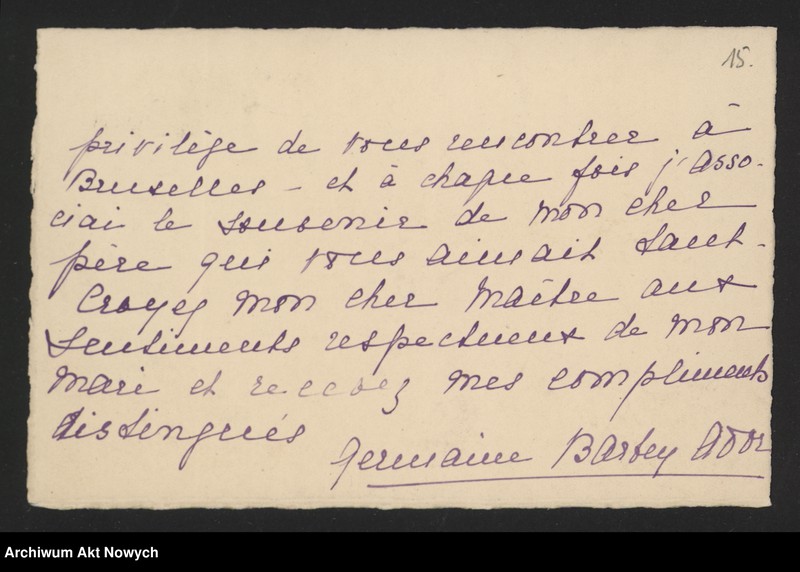 15.
privilège de vous rencontrer à
Bruxelles - et à chaque fois j'asso-
ciai le souvenir de mon cher
père qui vous aimait tant.
Croyez mon cher Maître aux
sentiments respectueux de mon
mari et recevez mes compliments
distingués
Germaine Barbey Ador
Archiwum Akt Nowych